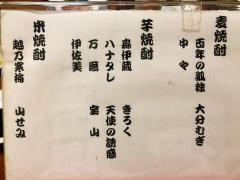 麦焼酎
百年の孤独　大分むぎ
中々
芋焼酎
森伊蔵　きろく
ハナタレ　天使の誘惑
万膳　宝山
伊佐美
米焼酎
越乃寒梅　山せみ